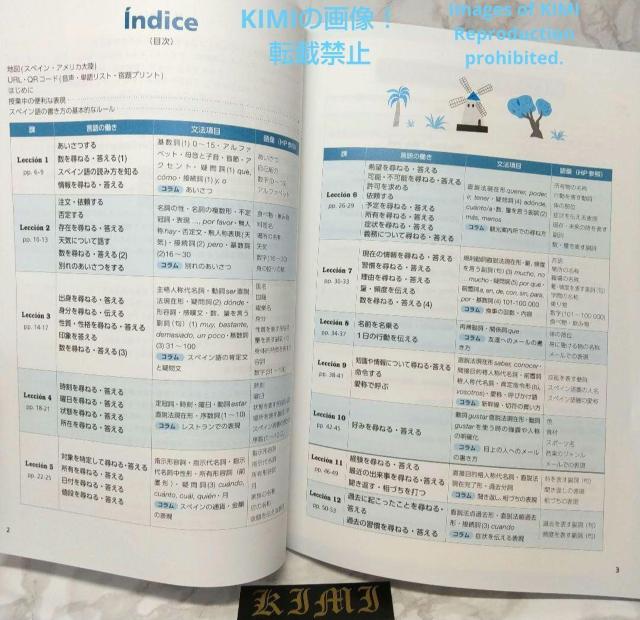 Índice
(目次)
KIMIの画像！
転載禁止
Images of KIMI
Reproduction
prohibited.
地図(スペイン・アメリカ大陸)
URL・QRコード(音声・単語リスト・宿題プリント)
はじめに
授業中の便利な表現
スペイン語の書き方の基本的なルール
課 言語の働き 文法項目 語彙(HP参照)
Lección 1
pp. 6-9
あいさつする
数を尋ねる・答える(1)
スペイン語の読み方を知る
情報を尋ねる・答える
基数詞(1) 0～15・アルファ
ベット・母音と子音・音節・ア
クセント・疑問詞(1) qué,
cómo・接続詞(1) y, o
コラム あいさつ
あいさつ
自己紹介
数字(0～15)
アルファベット
Lección 2
pp. 10-13
注文・依頼する
否定する
存在を尋ねる・答える
天気について話す
数を尋ねる・答える(2)
別れのあいさつをする
名詞の性・名詞の複数形・不定
冠詞・表現 ..., por favor・無人
称hay・否定文・無人称表現(天
気)・接続詞(2) pero・基数詞
(2)16～30
コラム 別れのあいさつ
食べ物・飲み物
料理名
場所の名称
天気
数字(16～30)
身の回りの物
Lección 3
pp. 14-17
出身を尋ねる・答える
身分を尋ねる・答える
性質・性格を尋ねる・答える
印象を答える
数を尋ねる・答える(3)
主格人称代名詞・動詞ser直説
法現在形・疑問詞(2) dónde・
形容詞・感嘆文・数、量を言う
副詞(句)(1) muy, bastante,
demasiado, un poco・基数詞
(3) 31～100
コラム スペイン語の肯定文
と疑問文
国名
国籍
職業名
身分
Lección 4
pp. 18-21
時刻を尋ねる・答える
曜日を尋ねる・答える
状態を尋ねる・答える
所在を尋ねる・答える
定冠詞・時刻・曜日・動詞estar
直説法現在形・序数詞(1～10)
コラム レストランでの表現
時刻
曜日
Lección 5
pp. 22-25
対象を特定して尋ねる・答える
所有を尋ねる・答える
日付を尋ねる・答える
値段を尋ねる・答える
指示形容詞・指示代名詞・指示
代名詞中性形・所有形容詞(前
置形)・疑問詞(3) cuándo,
cuánto, cuál, quién・月
コラム スペインの通貨・金額
の表現
指示形容詞
指示代名詞
2
課 言語の働き 文法項目 語彙(HP参照)
Lección 6
pp. 26-29
希望を尋ねる・答える
可能・不可能を尋ねる・答える
許可を求める
依頼する
予定を尋ねる・答える
所有を尋ねる・答える
症状を尋ねる・答える
義務について尋ねる・答える
直説法現在形querer, poder,
ir, tener・疑問詞(4) adónde,
cuánto/a・数、量を言う副詞(2)
más, menos
コラム 観光案内所での尋ね方
所有物の名称
行動を表す動詞
体の部位
症状を伝える表現
Lección 7
pp. 30-33
現在の情報を尋ねる・答える
習慣を尋ねる・答える
理由を尋ねる・答える
量・頻度を伝える
数を尋ねる・答える(4)
コラム 食事の回数・内容
Lección 8
pp. 34-37
名前を名乗る
1日の行動を伝える
再帰動詞・関係詞que
コラム 友達へのメールの書
き方
体の部位
身に着ける物の名称
メールでの表現
Lección 9
pp. 38-41
知識や情報について尋ねる・答える
命令する
愛称で呼ぶ
直説法現在形saber, conocer・
間接目的格人称代名詞・前置詞
格人称代名詞・肯定命令形(tú,
vosotros)・愛称・呼びかけ語
コラム 新幹線・切符の買い方
反応を表す動詞
スペイン語圏の人名
スペイン語圏の愛称
Lección 10
pp. 42-45
好みを尋ねる・答える
動詞gustar直説法現在形・動詞
gustarを使う時の強調や人称
の明確化
コラム 目上の人へのメール
の書き方
色
食材
スポーツ名
音楽のジャンル
メールでの表現
Lección 11
pp. 46-49
経験を尋ねる・答える
最近の出来事を尋ねる・答える
聞き返す・相づちを打つ
直接目的格人称代名詞・直説法
現在完了形・過去分詞
コラム 聞き返し、相づちの表現
時を表す副詞(句)
聞き返しの表現
相づちの表現
Lección 12
pp. 50-53
過去に起こったことを尋ねる・
答える
過去の習慣を尋ねる・答える
直説法点過去形・直説法線過去
形・接続詞(3) cuando
コラム 症状を伝える表現
過去を表す副詞(句)
頻度を表す副詞(句)
3
KIMI